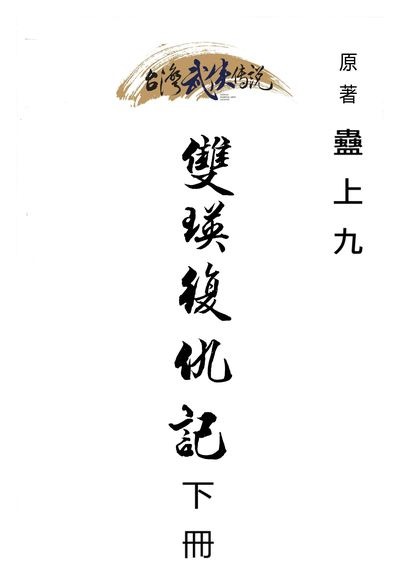 台灣武俠傳說
原著 蠱上九
雙瑛復仇記
下冊